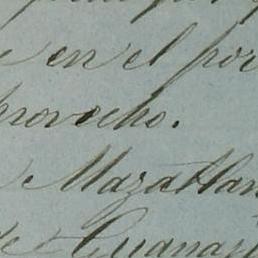 en el por
provecho.
Mazatlan
de Guanaj